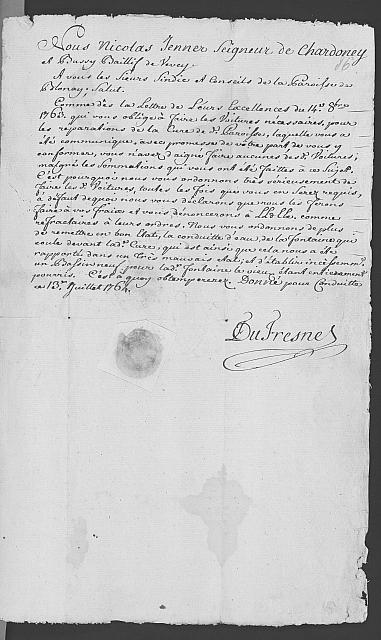 Nous Nicolas Jenner Seigneur de Chardoney
et Bussy Baillif de Vevey
A vous les Sieurs Sindic et Conseils de la Paroisse de
Blonay; Salut.
Comme dès la Lettre de Leurs Excellences du 14e 8bre
1763. qui vous oblige à faire les Voitures nécessaires, pour
les réparations de la Cure de de Paroisse, laquelle vous a
été communiquée, avec promesse de vôtre part de vous y
conformer, vous n'avez daigné faire aucunes desdes Voitures;
malgré les Sommations qui vous ont été faittes à ce Sujet.
C'est pourquoi nous vous ordonnons très sérieusement de
faire les des Voitures, toutes les fois que vous en serez requis,
à défaut dequoi nous vous déclarons que nous les ferons
faire à vos fraix et vous dénoncerons à LL.EE. comme
refractaires à leurs ordres. Nous vous ordonnons de plus
de remettre en bon état, la conduitte d'eau, de la fontaine qui
coule devant lade Cure, qui est ainsi que cela nous a été
rapporté dans un très mauvais état; et d'établir incessamment
un Bassin neuf pour lade fontaine le vieu étant entièrement
pourris. C'est à quoy obtempererez Donné pour Conduitte
ce 13e Juillet 1764.
DuFresne